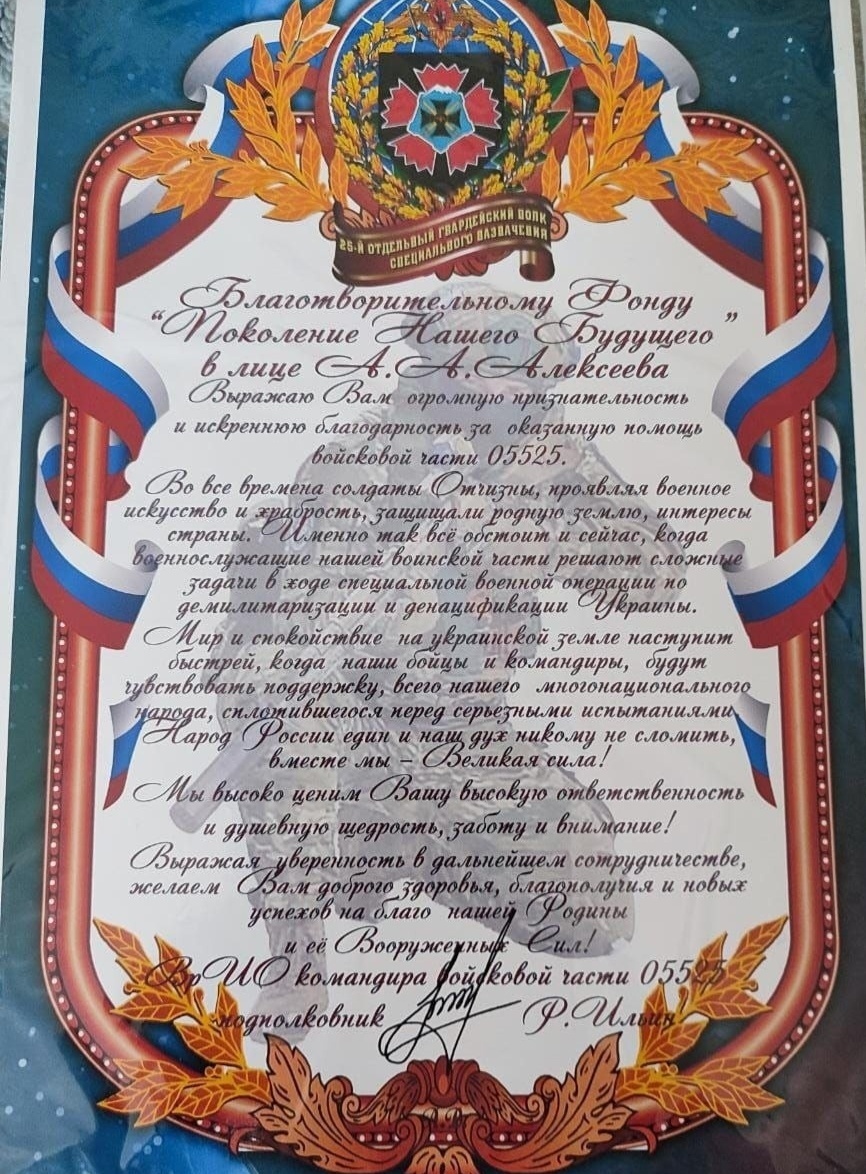 25-Й ОТДЕЛЬНЫЙ ГВАРДЕЙСКИЙ ПОЛК
СПЕЦИАЛЬНОГО НАЗНАЧЕНИЯ
Благотворительному Фонду
“Поколение Нашего Будущего”
в лице А.А.Алексеева
Выражаю Вам огромную признательность
и искреннюю благодарность за оказанную помощь
войсковой части 05525.
Во все времена солдаты Отчизны, проявляя военное
искусство и храбрость, защищали родную землю, интересы
страны. Именно так всё обстоит и сейчас, когда
военнослужащие нашей воинской части решают сложные
задачи в ходе специальной военной операции по
демилитаризации и денацификации Украины.
Мир и спокойствие на украинской земле наступит
быстрей, когда наши бойцы и командиры, будут
чувствовать поддержку, всего нашего многонационального
народа, сплотившегося перед серьезными испытаниями.
Народ России един и наш дух никому не сломить,
вместе мы – Великая сила!
Мы высоко ценим Вашу высокую ответственность
и душевную щедрость, заботу и внимание!
Выражая уверенность в дальнейшем сотрудничестве,
желаем Вам доброго здоровья, благополучия и новых
успехов на благо нашей Родины
и её Вооруженных Сил!
ВрИО командира войсковой части 05525
подполковник Р.Ильин